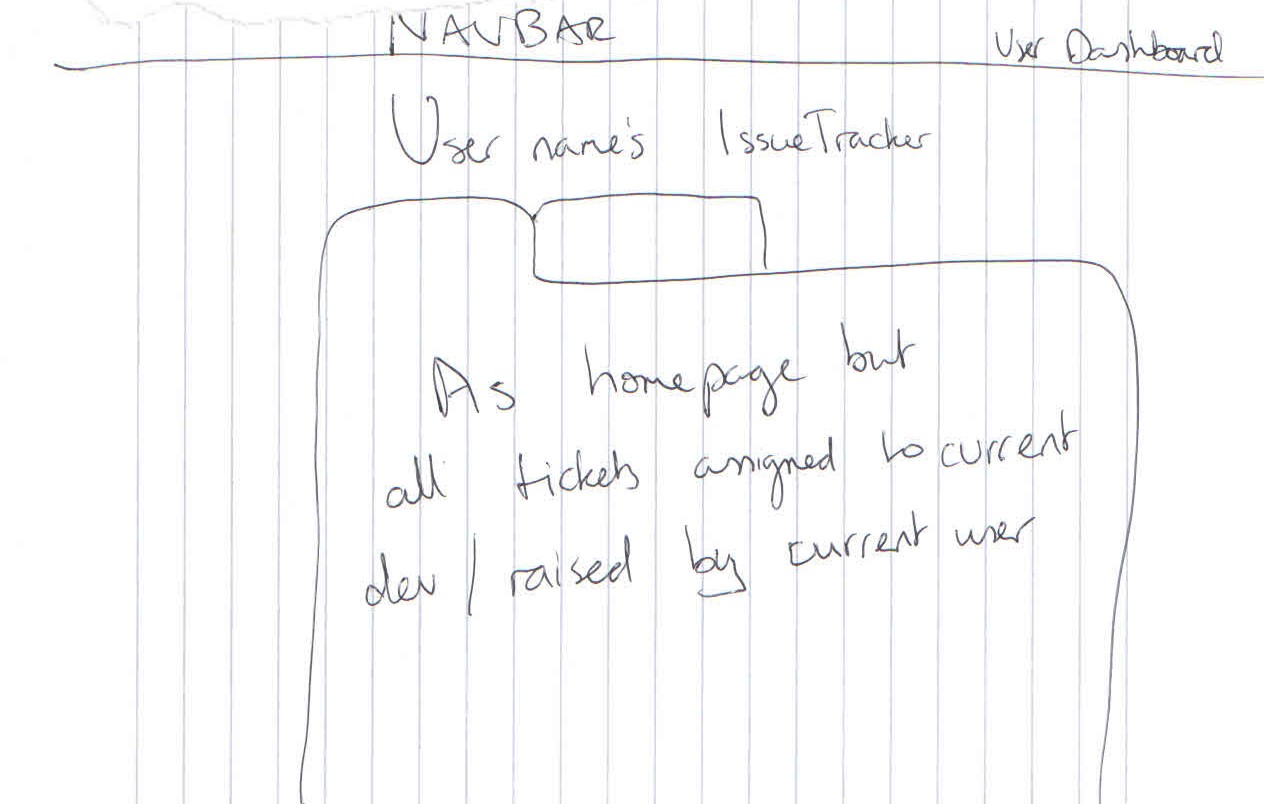 NAVBAR
User Dashboard
User name's IssueTracker
As homepage but
all tickets assigned to current
dev / raised by current user